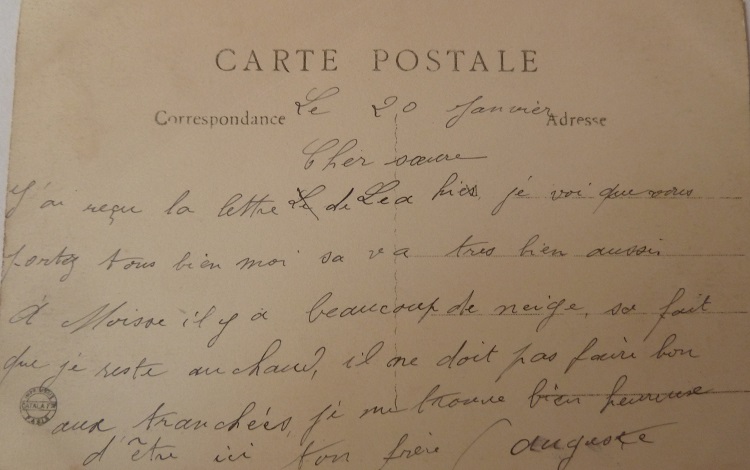 CARTE POSTALE
Le 20 Janvier
Correspondance
Adresse
Cher sœure
J'ai reçu la lettre de Lea hier, jé voi que vous
portez tous bien moi sa va tres bien aussi
A Moisse il y à beaucoup de neige, sa fait
que je reste au chaud, il ne doit pas faire bon
aux tranchées, jé me trouve bien heureuse
d'être ici ton frère Auguste